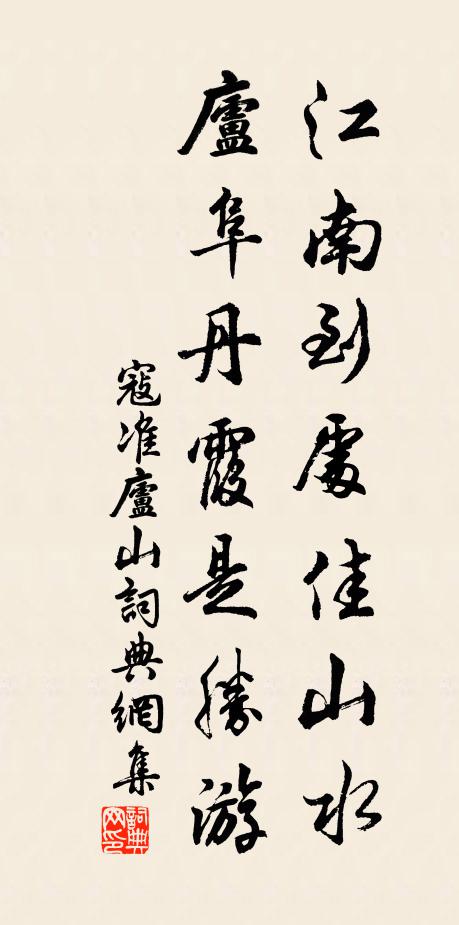 江南到處佳山水
廬阜丹霞是勝游
寇准廬山詞典網集
詞典网印